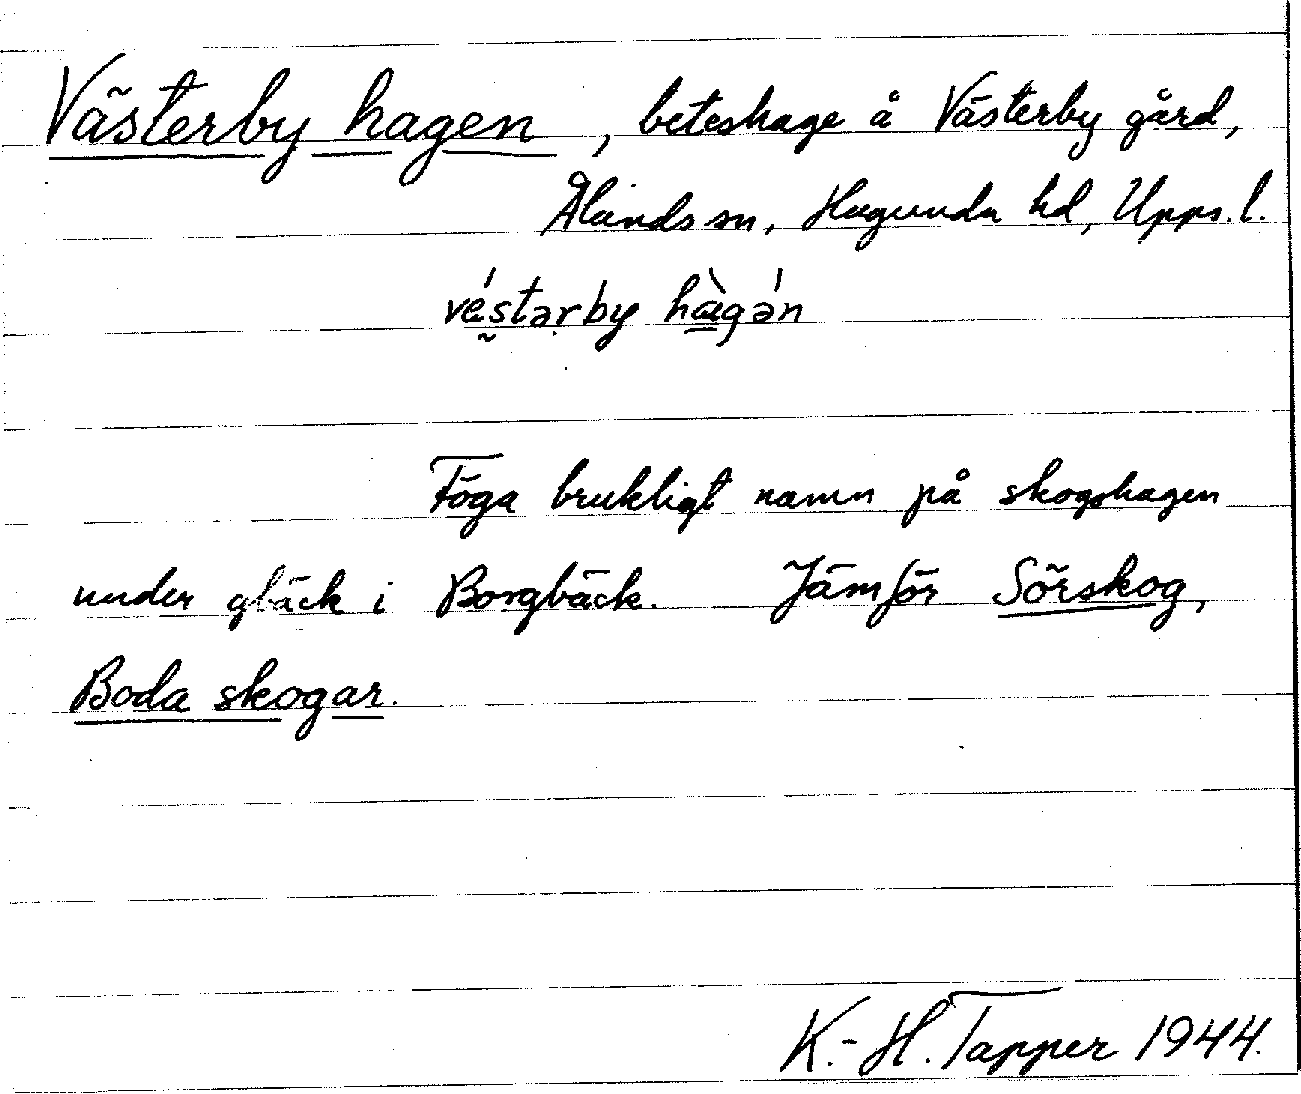 Västerby hagen, beteshage å Västerby gård,
Ålands sn, Hagunda hd, Upps. l.
vḛ́stərby hàgə́n
Föga brukligt namn på skogshagen
under gläck i Borgbäck. Jämför Sörskog,
Boda skogar.
K.-H. Tapper 1944.